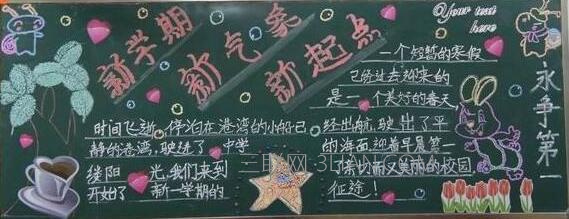 新学期
新气象
新起点
@Your text
here
一个短暂的寒假
已经过去迎来的
是一个美好的春天
时间飞逝 停泊在港湾的小船已
静的港湾,驶进了 中学
缕阳 光,我们来到
开始了 新一学期的
经出航,驶出了平
的海面迎着早晨第一
而又美丽的校园,
征途!
永争第一